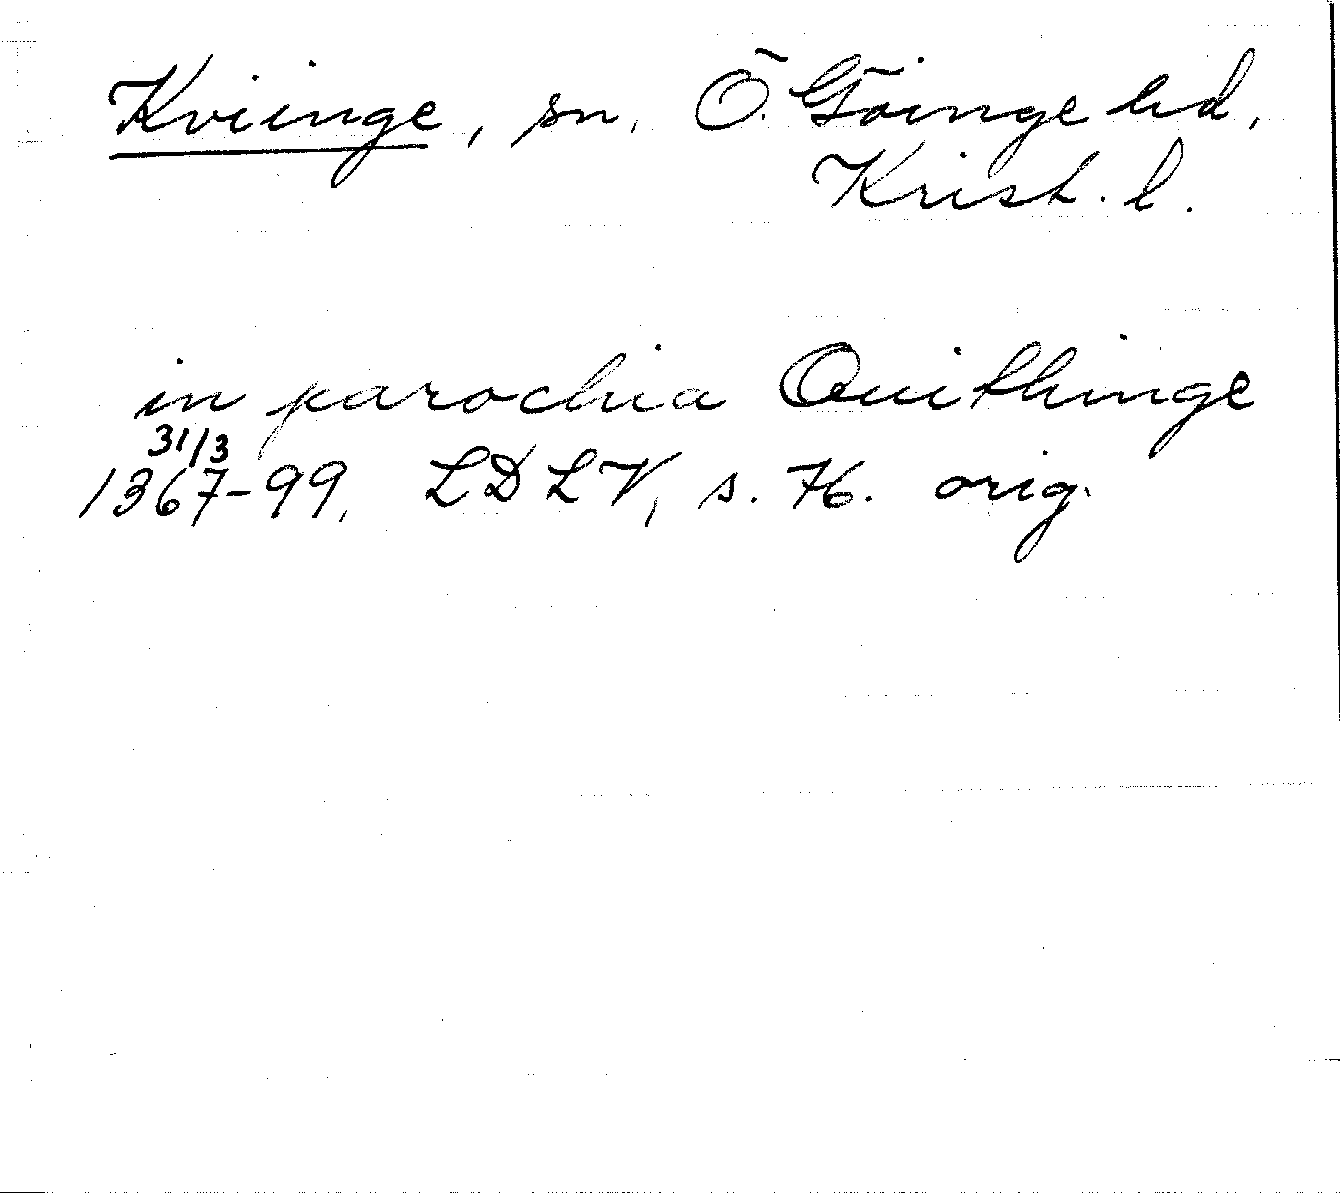 Kviinge, sn, Ö. Göinge hd,
Krist. l.
in parochia Quithinge
31/3
1367-99, LDLV, s. 76. orig.